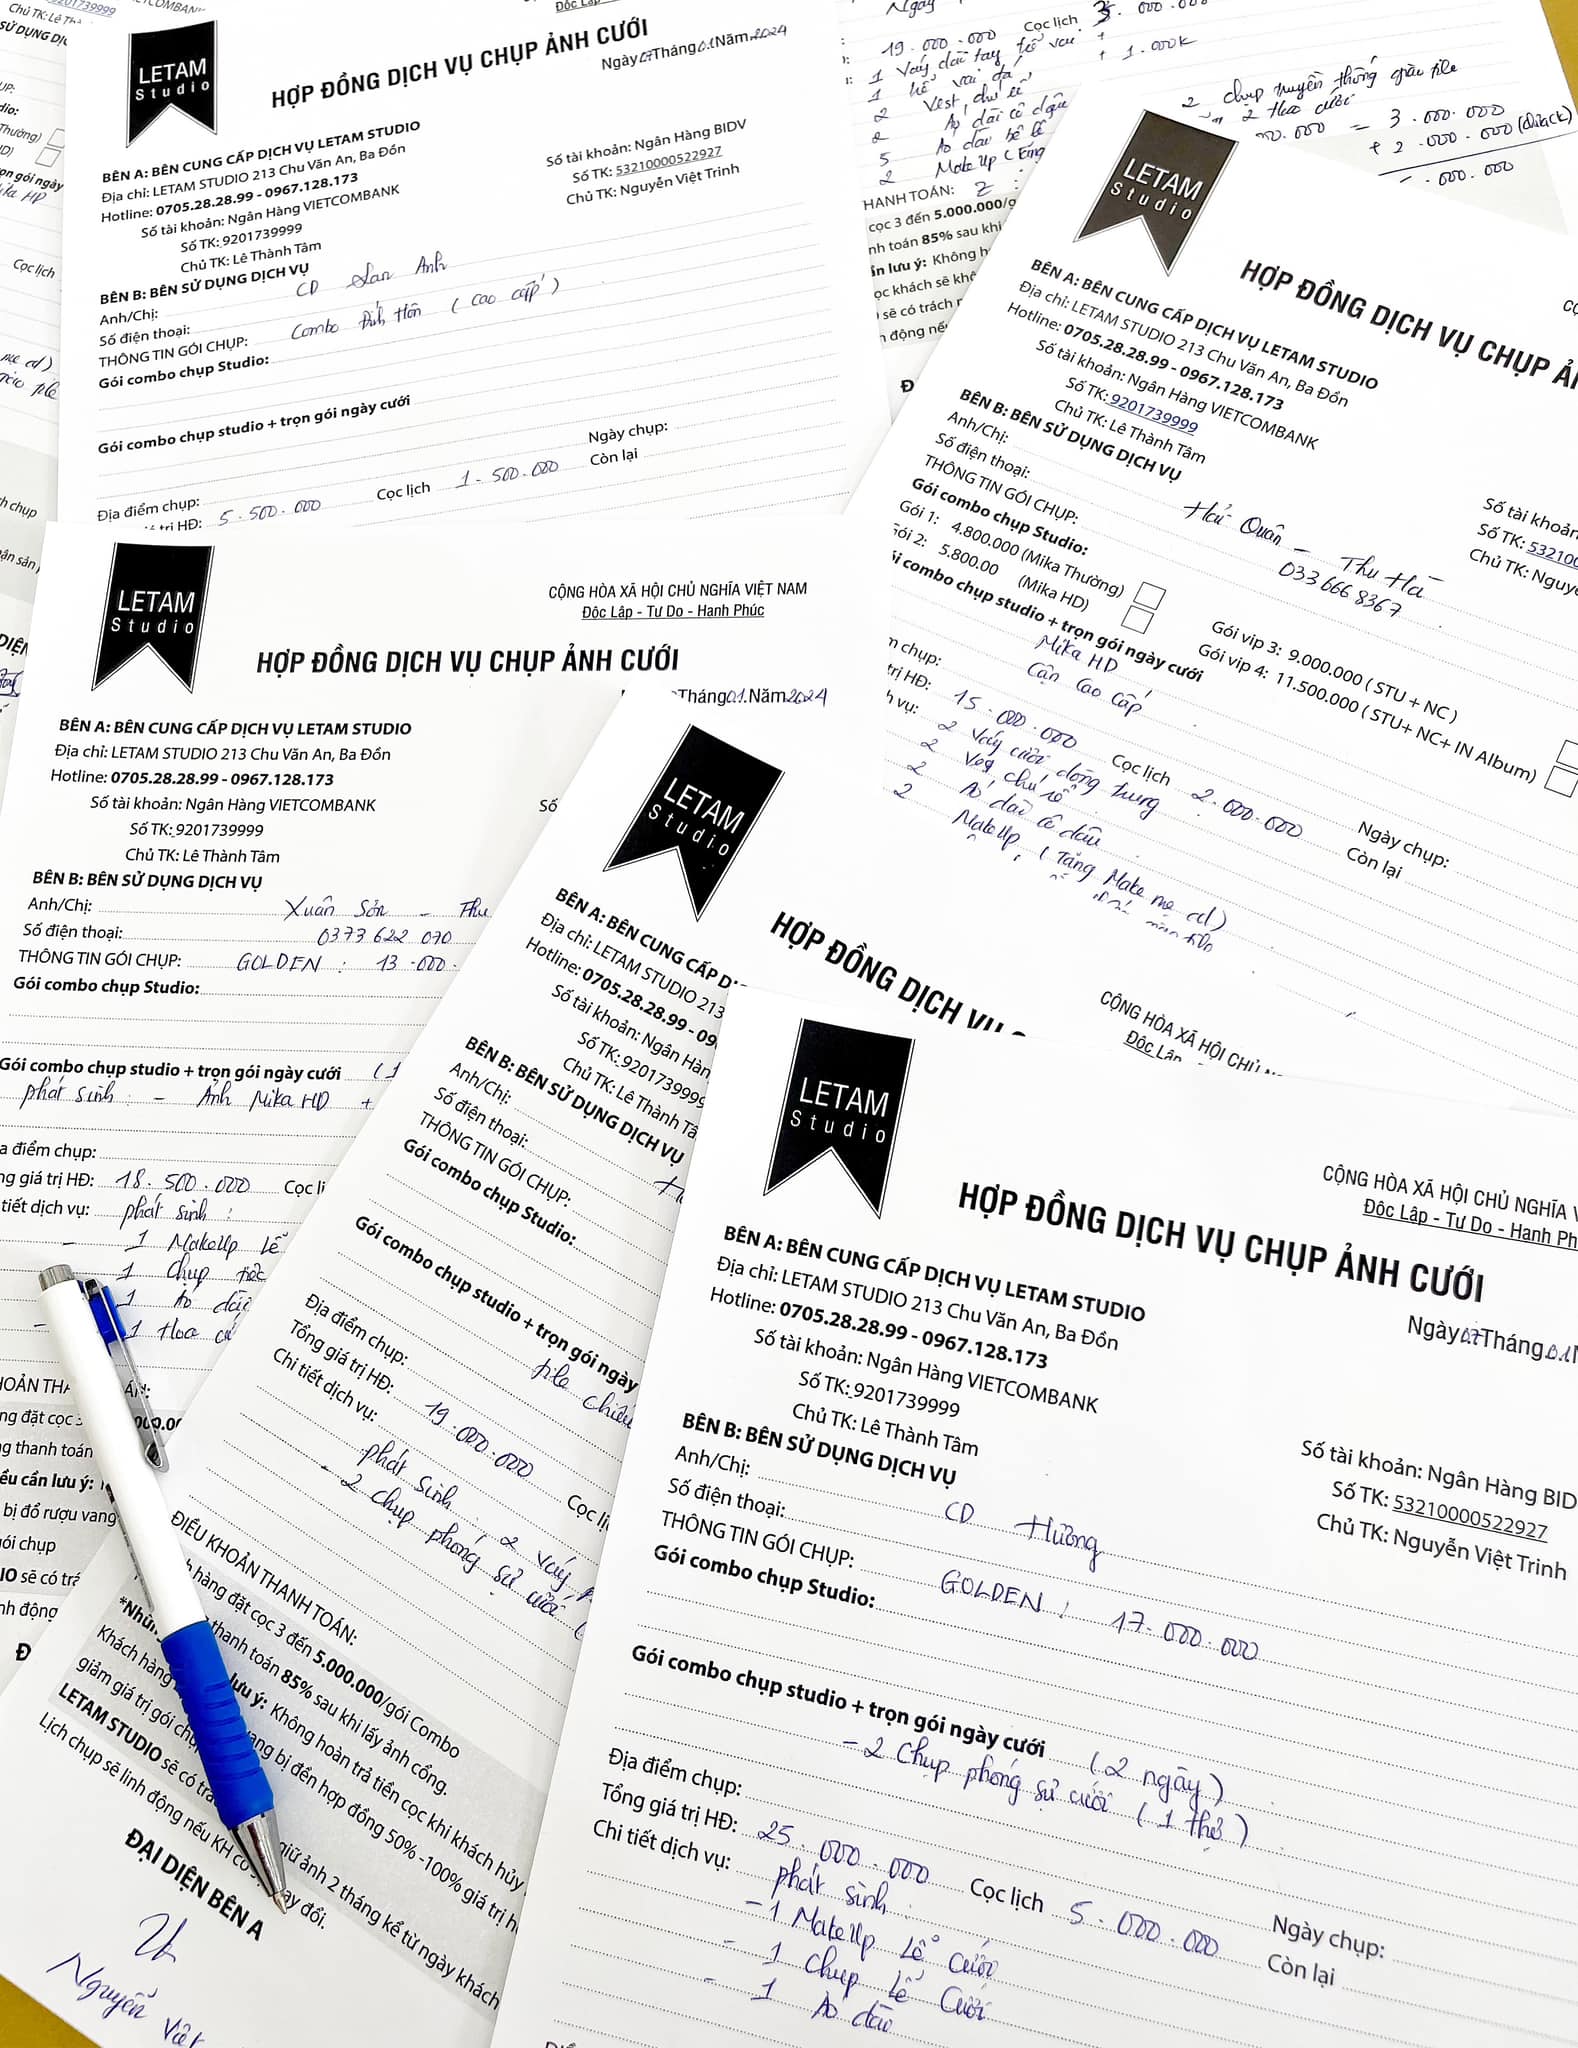 9201739999
Chủ TK: Lê Th
SỬ DỤNG DỊCH
Thường)
HD)
Mika HD
Cọc lịch
LETAM
Studio
HỢP ĐỒNG DỊCH VỤ CHỤP ẢNH CƯỚI
Ngày 07 Tháng 01 Năm 2024
BÊN A: BÊN CUNG CẤP DỊCH VỤ LETAM STUDIO
Địa chỉ: LETAM STUDIO 213 Chu Văn An, Ba Đồn
Hotline: 0705.28.28.99 - 0967.128.173
Số tài khoản: Ngân Hàng VIETCOMBANK
Số TK: 9201739999
Chủ TK: Lê Thành Tâm
Số tài khoản: Ngân Hàng BIDV
Số TK: 53210000522927
Chủ TK: Nguyễn Việt Trinh
BÊN B: BÊN SỬ DỤNG DỊCH VỤ
Anh/Chị: CD Lan Anh
Số điện thoại:
THÔNG TIN GÓI CHỤP: Combo Đính Hôn (Cao cấp)
Gói combo chụp Studio:
Gói combo chụp studio + trọn gói ngày cưới
Ngày chụp:
Địa điểm chụp:
trị HĐ: 5.500.000 Cọc lịch 1.500.000 Còn lại
Ngày
19.000.000 Cọc lịch 3.000.000
+ 1.000K
1 Váy dài tay
2 Vest chú rể
2 Áo dài cô dâu
5 Áo dài bê lễ
2 MakeUp
HANH TOÁN:
cọc 3 đến 5.000.000/g
nh toán 85% sau khi
ần lưu ý: Không h
ọc khách sẽ kh
sẽ có trách
động nếu
2 chụp truyền thống
2 hoa cưới
= 3.000.000
+ 2.000.000
.000.000
LETAM
Studio
HỢP ĐỒNG DỊCH VỤ CHỤP Ả
BÊN A: BÊN CUNG CẤP DỊCH VỤ LETAM STUDIO
Địa chỉ: LETAM STUDIO 213 Chu Văn An, Ba Đồn
Hotline: 0705.28.28.99 - 0967.128.173
Số tài khoản: Ngân Hàng VIETCOMBANK
Số TK: 9201739999
Chủ TK: Lê Thành Tâm
Số tài khoản
Số TK: 532100
Chủ TK: Nguyễ
BÊN B: BÊN SỬ DỤNG DỊCH VỤ
Anh/Chị: Hải Quân - Thu Hà
Số điện thoại: 033 666 8367
THÔNG TIN GÓI CHỤP:
Gói combo chụp Studio:
Gói 1: 4.800.000 (Mika Thường)
Gói 2: 5.800.00 (Mika HD)
Gói vip 3: 9.000.000 ( STU + NC )
Gói vip 4: 11.500.000 ( STU+ NC+ IN Album)
i combo chụp studio + trọn gói ngày cưới
Mika HD
Cận Cao Cấp
m chụp:
Ngày chụp:
trị HĐ: 15.000.000 Cọc lịch 2.000.000 Còn lại
h vụ: 2 Váy cưới dòng trung
2 Vest chú rể
2 Áo dài cô dâu
2 MakeUp, (Tặng Make mẹ cd)
LETAM
Studio
CỘNG HÒA XÃ HỘI CHỦ NGHĨA VIỆT NAM
Độc Lập - Tự Do - Hạnh Phúc
HỢP ĐỒNG DỊCH VỤ CHỤP ẢNH CƯỚI
Tháng 01 Năm 2024
BÊN A: BÊN CUNG CẤP DỊCH VỤ LETAM STUDIO
Địa chỉ: LETAM STUDIO 213 Chu Văn An, Ba Đồn
Hotline: 0705.28.28.99 - 0967.128.173
Số tài khoản: Ngân Hàng VIETCOMBANK
Số TK: 9201739999
Chủ TK: Lê Thành Tâm
Số
BÊN B: BÊN SỬ DỤNG DỊCH VỤ
Anh/Chị: Xuân Sơn - Thu
Số điện thoại: 0373 622 070
THÔNG TIN GÓI CHỤP: GOLDEN: 13.000.
Gói combo chụp Studio:
Gói combo chụp studio + trọn gói ngày cưới (1
phát sinh - Ảnh Mika HD +
a điểm chụp:
ng giá trị HĐ: 18.500.000 Cọc lị
tiết dịch vụ: phát sinh:
- 1 MakeUp lễ
1 Chụp tiệc
1 Áo dài
- 1 Hoa
HOẢN THA ÁN:
ng đặt cọc 3 000.00
g thanh toán
ều cần lưu ý:
bị đổ rượu vang
gói chụp
IO sẽ có trá
nh động
LETAM
Studio
HỢP ĐỒNG DỊCH VỤ
BÊN A: BÊN CUNG CẤP D
Địa chỉ: LETAM STUDIO 213
Hotline: 0705.28.28.99 - 09
Số tài khoản: Ngân Hàn
Số TK: 9201739999
Chủ TK: Lê Thành Tâ
BÊN B: BÊN SỬ DỤNG DỊCH VỤ
Anh/Chị:
Số điện thoại:
THÔNG TIN GÓI CHỤP:
Gói combo chụp Studio:
Gói combo chụp studio + trọn gói ngày
file
Địa điểm chụp:
Tổng giá trị HĐ: 19.000.000 Cọc lị
Chi tiết dịch vụ: phát sinh: 2 váy
- 2 chụp phóng sự cưới (
ĐIỀU KHOẢN THANH TOÁN:
h hàng đặt cọc 3 đến 5.000.000/gói Combo
thanh toán 85% sau khi lấy ảnh cổng.
*Nhữn lưu ý: Không hoàn trả tiền cọc khi khách hủy
Khách hàng vang bị đền hợp đồng 50% -100% giá trị h
giảm giá trị gói chụ
LETAM STUDIO sẽ có trá giữ ảnh 2 tháng kể từ ngày khách
Lịch chụp sẽ linh động nếu KH có ay đổi.
ĐẠI DIỆN BÊN A
Nguyễn Việt
CỘNG HÒA XÃ HỘI CHỦ N
Độc Lập
LETAM
Studio
CỘNG HÒA XÃ HỘI CHỦ NGHĨA V
Độc Lập - Tự Do - Hạnh Ph
HỢP ĐỒNG DỊCH VỤ CHỤP ẢNH CƯỚI
Ngày 07 Tháng 01 N
BÊN A: BÊN CUNG CẤP DỊCH VỤ LETAM STUDIO
Địa chỉ: LETAM STUDIO 213 Chu Văn An, Ba Đồn
Hotline: 0705.28.28.99 - 0967.128.173
Số tài khoản: Ngân Hàng VIETCOMBANK
Số TK: 9201739999
Chủ TK: Lê Thành Tâm
Số tài khoản: Ngân Hàng BID
Số TK: 53210000522927
Chủ TK: Nguyễn Việt Trinh
BÊN B: BÊN SỬ DỤNG DỊCH VỤ
Anh/Chị: CD Hương
Số điện thoại:
THÔNG TIN GÓI CHỤP: GOLDEN: 17.000.000
Gói combo chụp Studio:
Gói combo chụp studio + trọn gói ngày cưới (2 ngày)
- 2 Chụp phóng sự cưới (1 thợ)
Địa điểm chụp:
Ngày chụp:
Tổng giá trị HĐ: 25.000.000 Cọc lịch 5.000.000 Còn lại
Chi tiết dịch vụ: phát sinh:
- 1 MakeUp Lễ Cưới
- 1 Chụp Lễ Cưới
- 1 Áo dài